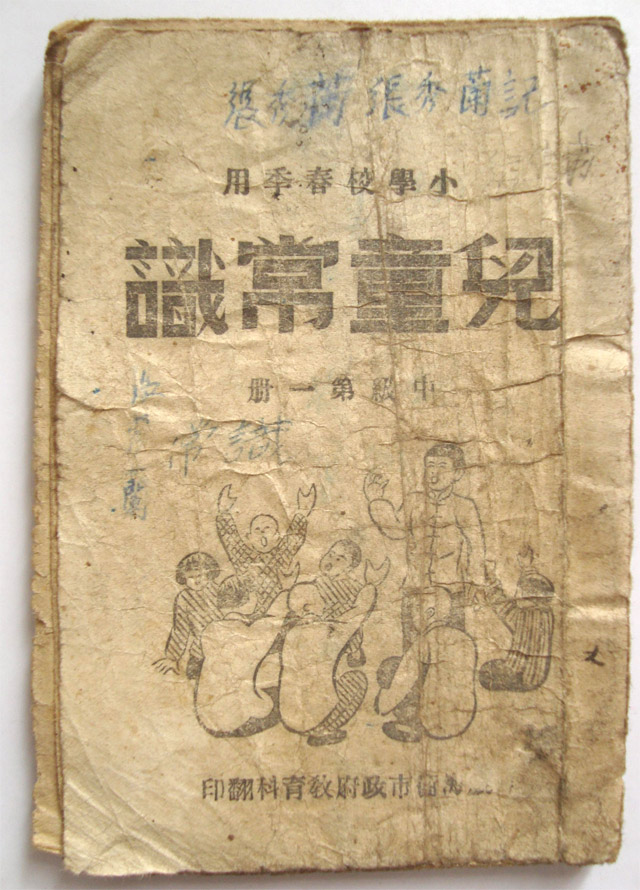 張秀蘭 張秀蘭記
小學校春季用
兒童常識
中級第一册
常識
市政府教育科翻印